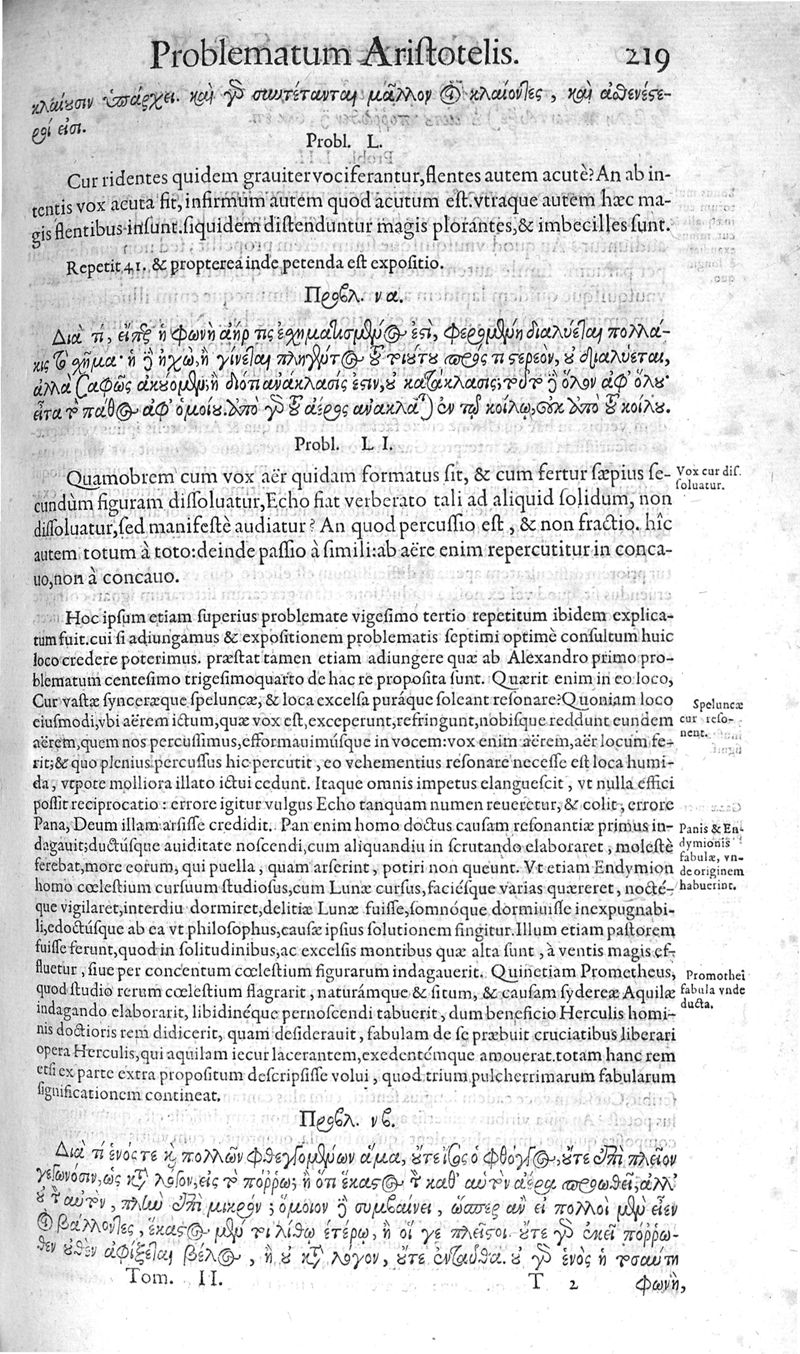 Problematum Aristotelis. 219
κλαίουσιν ὑπάρχει. καὶ γὸ συντέτανται μᾶλλον οἱ κλαίοντες, καὶ ἀσθενέστε-
ροί εἰσι.
Probl. L.
Cur ridentes quidem grauiter vociferantur, flentes autem acutè? An ab in-
tentis vox acuta fit, infirmum autem quod acutum est. vtraque autem hæc ma-
gis flentibus insunt. siquidem distenduntur magis plorantes, & imbecilles sunt.
Repetit 41. & propterea inde petenda est expositio.
Προβλ. να.
Διὰ τί, εἴπερ ἡ φωνὴ ἀήρ τις ἐσχηματισμένος ἐστὶ, φερομένη διαλύεται πολλά-
κις τὸ σχῆμα· ἡ δὲ ἠχὼ, ἣ γίνεται πληγέντος τοῦ τοιούτου πρὸς τι στερεὸν, οὐ διαλύεται,
ἀλλὰ σαφῶς ἀκούομεν; ἢ διότι ἀνάκλασίς ἐστιν, οὐ κατάκλασις; τοῦτο δὲ ὅλον ἀφ' ὅλου·
εἶτα τὸ πάθος ἀφ' ὁμοίου. ὑπὸ γὸ τοῦ ἀέρος ἀνακλᾶται ἐν τῷ κοίλῳ, οὐκ ὑπὸ τοῦ κοίλου.
Probl. LI.
Quamobrem cum vox aër quidam formatus sit, & cum fertur sæpius se-
cundùm figuram dissoluatur, Echo fiat verberato tali ad aliquid solidum, non
dissoluatur, sed manifestè audiatur? An quod percussio est, & non fractio. hîc
autem totum à toto: deinde passio à simili: ab aëre enim repercutitur in conca-
uo, non à concauo.
Vox cur dis.
soluatur.
Hoc ipsum etiam superius problemate vigesimo tertio repetitum ibidem explica-
tum fuit. cui si adiungamus & expositionem problematis septimi optimè consultum huic
loco credere poterimus. præstat tamen etiam adiungere quæ ab Alexandro primo pro-
blematum centesimo trigesimoquarto de hac re proposita sunt. Quærit enim in eo loco,
Cur vastæ synceræque speluncæ, & loca excelsa puráque soleant resonare? Quoniam loco
eiusmodi, vbi aërem ictum, quæ vox est, exceperunt, refringunt, nobisque reddunt eundem
aërem, quem nos percussimus, efformauimúsque in vocem: vox enim aërem, aër locum fe-
rit; & quo plenius percussus hic percutit, eo vehementius resonare necesse est loca humi-
da, vtpote molliora illato ictui cedunt. Itaque omnis impetus elanguescit, vt nulla effici
possit reciprocatio: errore igitur vulgus Echo tanquam numen reueretur, & colit, errore
Pana, Deum illam arsisse credidit. Pan enim homo doctus causam resonantiæ primus in-
dagauit; ductúsque auiditate noscendi, cum aliquandiu in scrutando elaboraret, molestè
ferebat, more eorum, qui puella, quam arserint, potiri non queunt. Vt etiam Endymion
homo cœlestium cursuum studiosus, cum Lunæ cursus, faciésque varias quæreret, nocté-
que vigilaret, interdiu dormiret, delitiæ Lunæ fuisse, somnóque dormiuisse inexpugnabi-
li, edoctúsque ab ea vt philosophus, causæ ipsius solutionem fingitur. Illum etiam pastorem
fuisse ferunt, quod in solitudinibus, ac excelsis montibus quæ alta sunt, à ventis magis ef-
fluetur, siue per concentum cœlestium figurarum indagauerit. Quinetiam Prometheus,
quod studio rerum cœlestium flagrarit, naturámque & situm, & causam sydereæ Aquilæ
indagando elaborarit, libidinéque pernoscendi tabuerit, dum beneficio Herculis homi-
nis doctioris rem didicerit, quam desiderauit, fabulam de se præbuit cruciatibus liberari
opera Herculis, qui aquilam iecur lacerantem, exedentémque amouerat. totam hanc rem
etsi ex parte extra propositum descripsisse volui, quod trium pulcherrimarum fabularum
significationem contineat.
Speluncæ
cur reso-
nent.
Panis & En-
dymionis
fabulæ, vn-
de originem
habuerint.
Promothei
fabula vnde
ducta.
Προβλ. νβ.
Διὰ τί ἑνός τε καὶ πολλῶν φθεγγομένων ἅμα, οὔτε ἴσος ὁ φθόγγος, οὔτε ἐπὶ πλεῖον
γεγώνοσιν, ὡς κατὰ λόγον, εἰς τὸ πόρρω; ἢ ὅτι ἕκαστος τὸν καθ' αὑτὸν ἀέρα προωθεῖ, ἀλλ'
οὐ τὸν αὐτὸν, πλὴν ἐπὶ μικρόν; ὅμοιον δὲ συμβαίνει, ὥσπερ ἂν εἰ πολλοὶ μὲν εἶεν
οἱ βάλλοντες, ἕκαστος μέν τοι λίθῳ ἑτέρῳ, ἢ οἵ γε πλεῖστοι. οὔτε γὸ ἐκεῖ πορρω-
θεν οὐθὲν ἀφίξεται βέλος, ἢ οὐ κατὰ λόγον, οὔτε ἐνταῦθα. οὐ γὸ ἑνὸς ἡ τοσαύτη
Tom. II. T 2 φωνὴ,